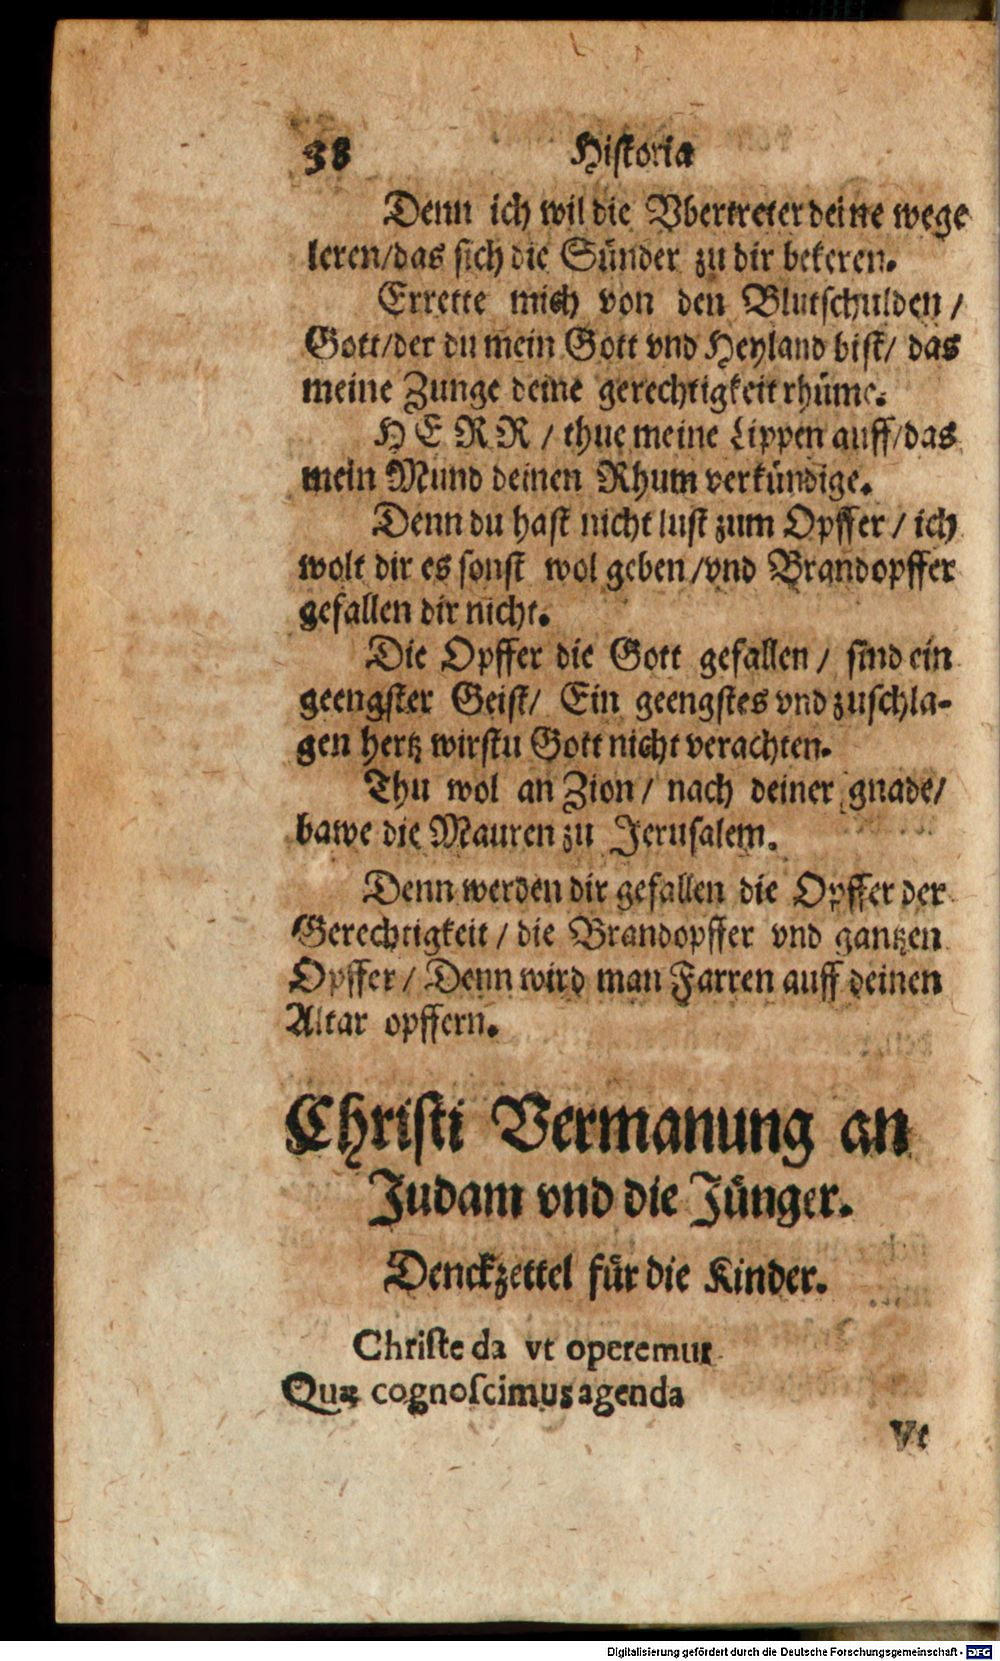 38 Historia
Denn ich wil die Vbertreter deine wege
leren/das sich die Sünder zu dir bekeren.
Errette mich von den Blutschulden /
Gott/der du mein Gott vnd Heyland bist/ das
meine Zunge deine gerechtigkeit rhüme.
HERR / thue meine Lippen auff/das
mein Mund deinen Rhum verkündige.
Denn du hast nicht lust zum Opffer / ich
wolt dir es sonst wol geben /vnd Brandopffer
gefallen dir nicht.
Die Opffer die Gott gefallen / sind ein
geengster Geist/ Ein geengstes vnd zuschla-
gen hertz wirstu Gott nicht verachten.
Thu wol an Zion / nach deiner gnade/
bawe die Mauren zu Jerusalem.
Denn werden dir gefallen die Opffer der
Gerechtigkeit / die Brandopffer vnd gantzen
Opffer / Denn wird man Farren auff deinen
Altar opffern.
Christi Vermanung an
Judam vnd die Jünger.
Denckzettel für die Kinder.
Christe da vt operemur
Quæ cognoscimus agenda
Vt
Digitalisierung gefördert durch die Deutsche Forschungsgemeinschaft - DFG